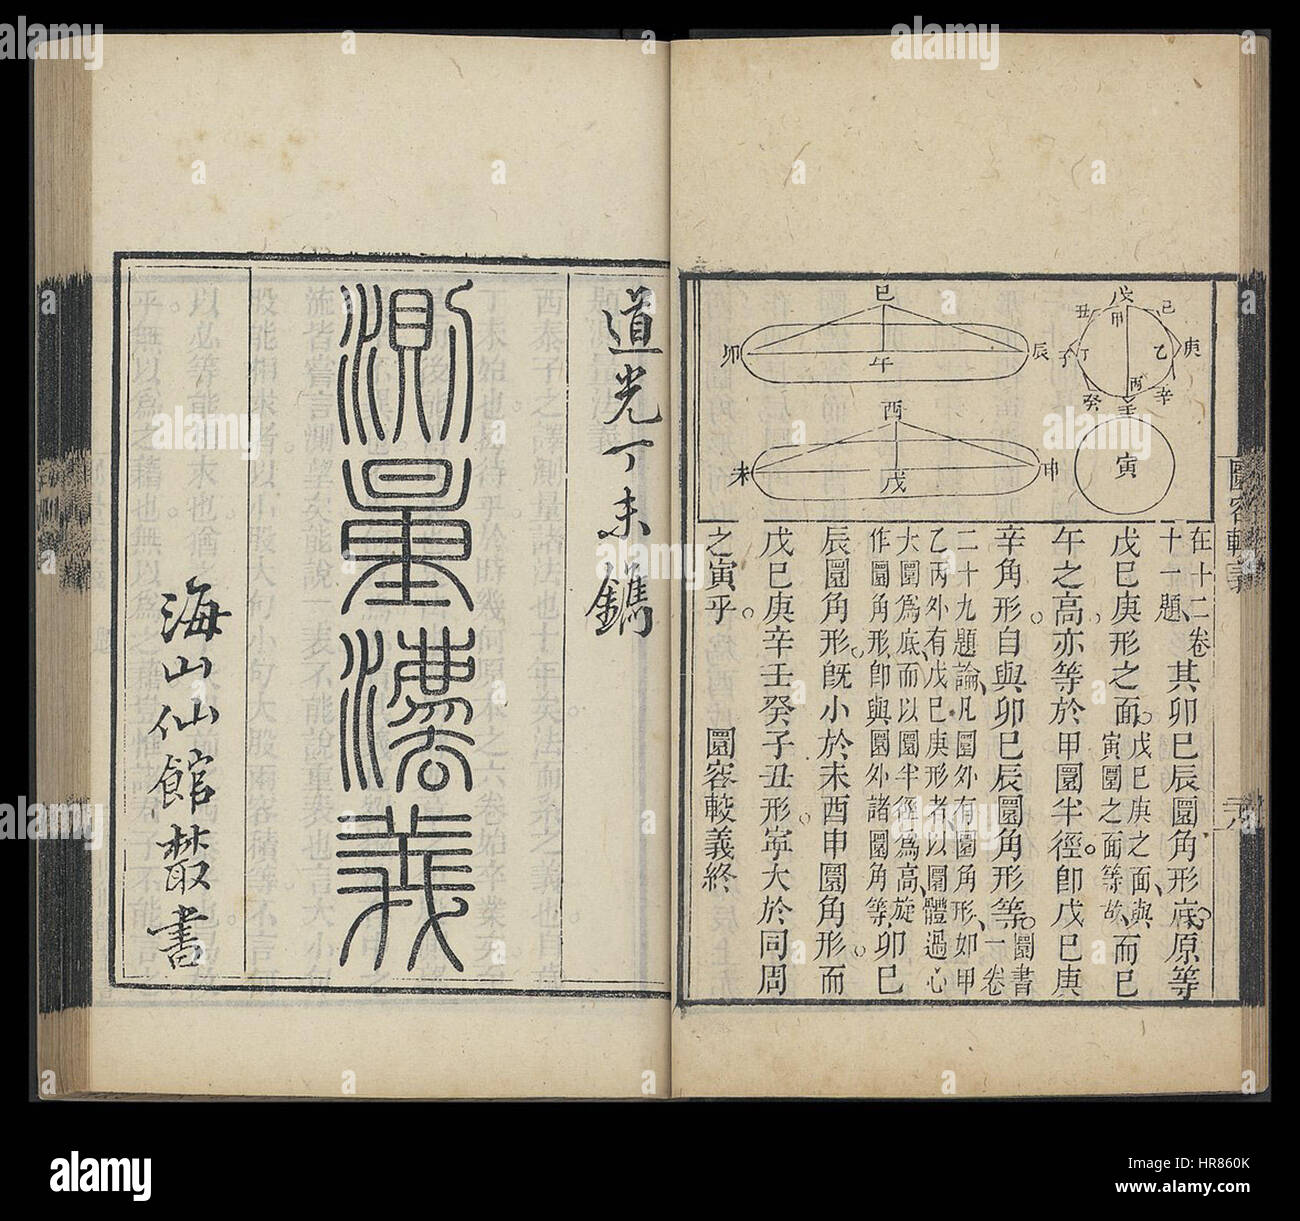 巳
卯
辰
午
酉
未
申
戌
戊
己
庚
辛
壬
癸
子
丑
甲
乙
丙
丁
寅
在十二卷
十一題其卯巳辰圜角形底原等
戊己庚形之面戊己庚之面與寅圜之面等故而巳
午之高亦等於甲圜半徑卽戊己庚
辛角形自與卯巳辰圜角形等圜書一卷
二十九題論凡圜外有圜角形如甲
乙丙外有戊己庚形者以圜體過心
大圜爲底而以圜半徑爲高旋
作圜角形卽與圜外諸圜角等卯巳
辰圜角形旣小於未酉申圜角形而
戊己庚辛壬癸子丑形寧大於同周
之寅乎
圜容較義終
圜容較義
道光丁未鐫
測量灋義
海山仙館叢書
alamy stock photo
HR860K
www.alamy.com